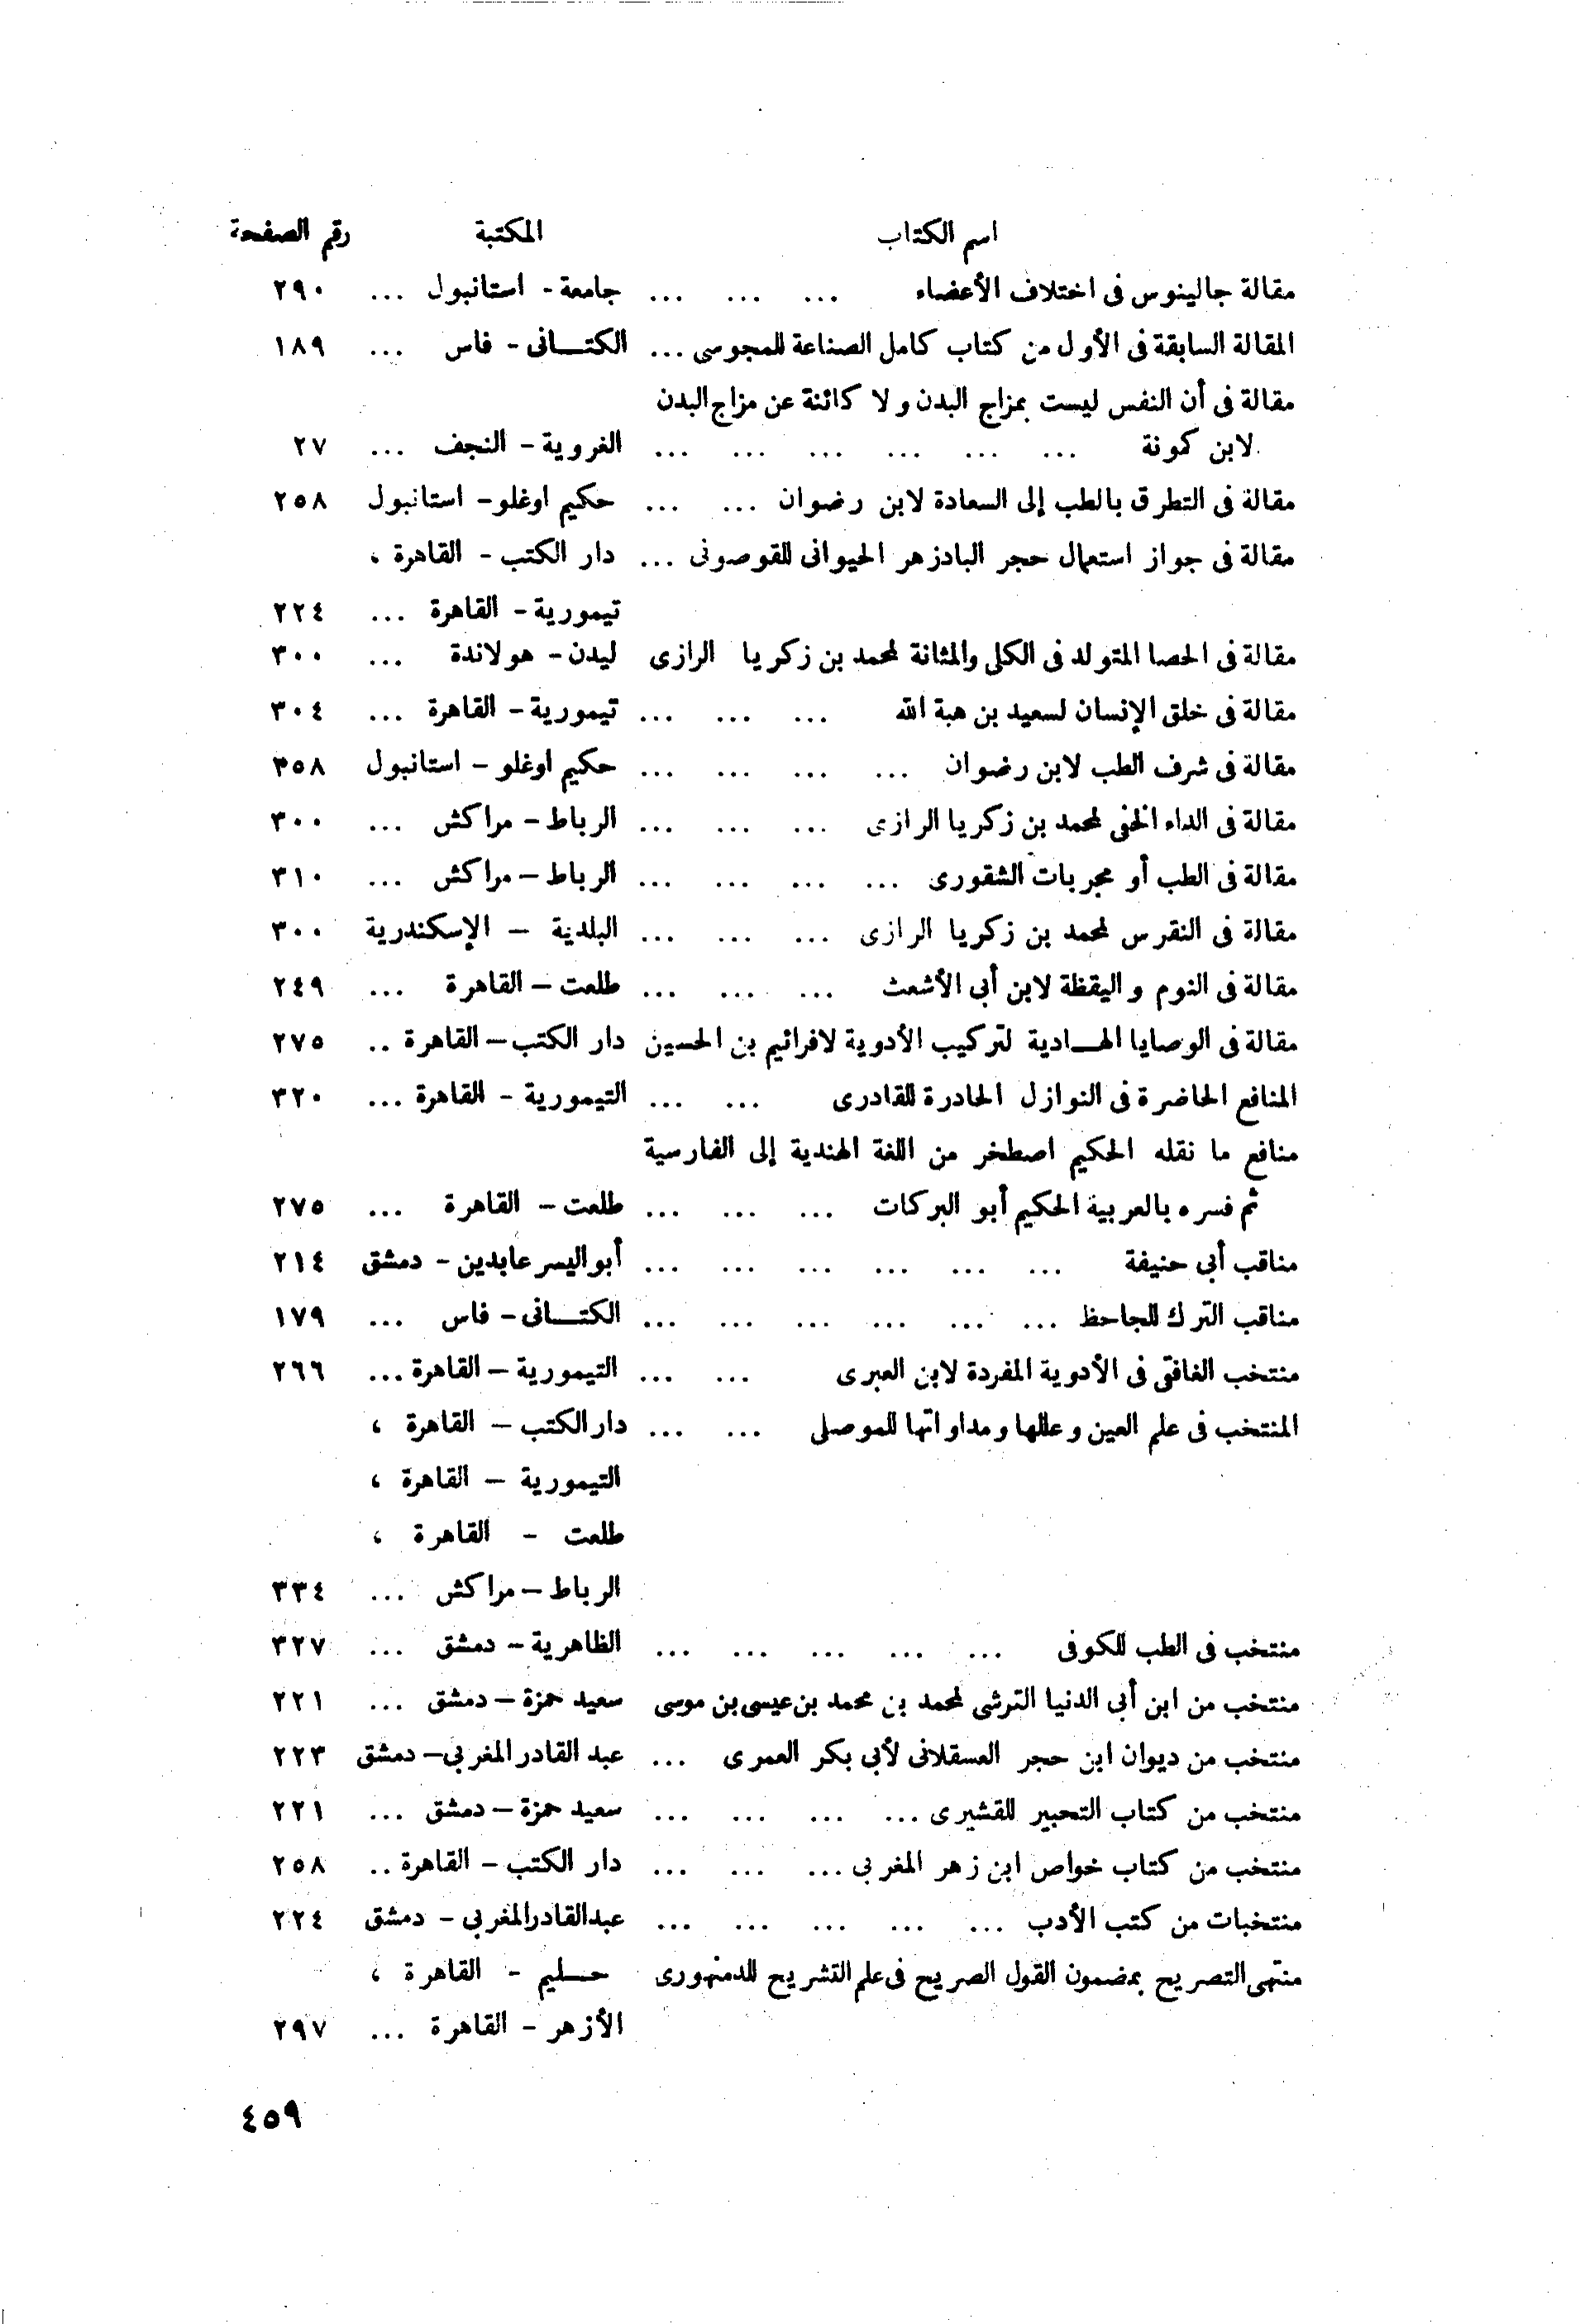 اسم الكتاب المكتبة رقم الصفحة
مقالة جالينوس فى اختلاف الأعضاء ... ... ... جامعة - استانبول ... ٢٩٠
المقالة السابقة فى الأول من كتاب كامل الصناعة للمجوسى ... الكتانى - فاس ... ١٨٩
مقالة فى أن النفس ليست بمزاج البدن ولا كائنة عن مزاج البدن
لابن كمونة ... ... ... ... ... ... الغروية - النجف ... ٢٧
مقالة فى التطرق بالطب إلى السعادة لابن رضوان ... ... حكيم اوغلو - استانبول ٢٥٨
مقالة فى جواز استعمال حجر البادزهر الحيوانى للقوصونى ... دار الكتب - القاهرة ،
تيمورية - القاهرة ... ٢٢٤
مقالة فى الحصا المتولد فى الكلى والمثانة لمحمد بن زكريا الرازى ليدن - هولاندة ... ٣٠٠
مقالة فى خلق الإنسان لسعيد بن هبة الله ... ... ... تيمورية - القاهرة ... ٣٠٤
مقالة فى شرف الطب لابن رضوان ... ... ... ... حكيم اوغلو - استانبول ٣٥٨
مقالة فى الداء الخفى لمحمد بن زكريا الرازى ... ... ... الرباط - مراكش ... ٣٠٠
مقالة فى الطب أو مجربات الشقورى ... ... ... ... الرباط - مراكش ... ٣١٠
مقالة فى النقرس لمحمد بن زكريا الرازى ... ... ... البلدية - الإسكندرية ٣٠٠
مقالة فى النوم واليقظة لابن أبى الأشعث ... ... ... طلعت - القاهرة ... ٢٤٩
مقالة فى الوصايا الهادية لتركيب الأدوية لافرائيم بن الحسين دار الكتب - القاهرة .. ٢٧٥
المنافع الحاضرة فى النوازل الحادرة للقادرى ... ... التيمورية - القاهرة ... ٣٢٠
منافع ما نقله الحكيم اصطخر من اللغة الهندية إلى الفارسية
ثم فسره بالعربية الحكيم أبو البركات ... ... ... طلعت - القاهرة ... ٢٧٥
مناقب أبى حنيفة ... ... ... ... ... ... أبو اليسر عابدين - دمشق ٢١٤
مناقب الترك للجاحظ ... ... ... ... ... ... الكتانى - فاس ... ١٧٩
منتخب الغافقى فى الأدوية المفردة لابن العبرى ... ... التيمورية - القاهرة ... ٢٦٦
المنتخب فى علم العين وعللها ومداواتها للموصلى ... ... دار الكتب - القاهرة ،
التيمورية - القاهرة ،
طلعت - القاهرة ،
الرباط - مراكش ... ٣٣٤
منتخب فى الطب للكوفى ... ... ... ... ... الظاهرية - دمشق ... ٣٢٧
منتخب من ابن أبى الدنيا الترشى لمحمد بن محمد بن عيسى بن موسى سعيد حمزة - دمشق ... ٢٢١
منتخب من ديوان ابن حجر العسقلانى لأبى بكر العمرى ... عبد القادر المغربى - دمشق ٢٢٣
منتخب من كتاب التحبير للقشيرى ... ... ... ... سعيد حمزة - دمشق ... ٢٢١
منتخب من كتاب خواص ابن زهر المغربى ... ... ... دار الكتب - القاهرة .. ٢٥٨
منتخبات من كتب الأدب ... ... ... ... ... عبد القادر المغربى - دمشق ٢٢٤
منتهى التصريح بمضمون القول الصريح فى علم التشريح للدمنهورى حليم - القاهرة ،
الأزهر - القاهرة ... ٢٩٧
٤٥٩